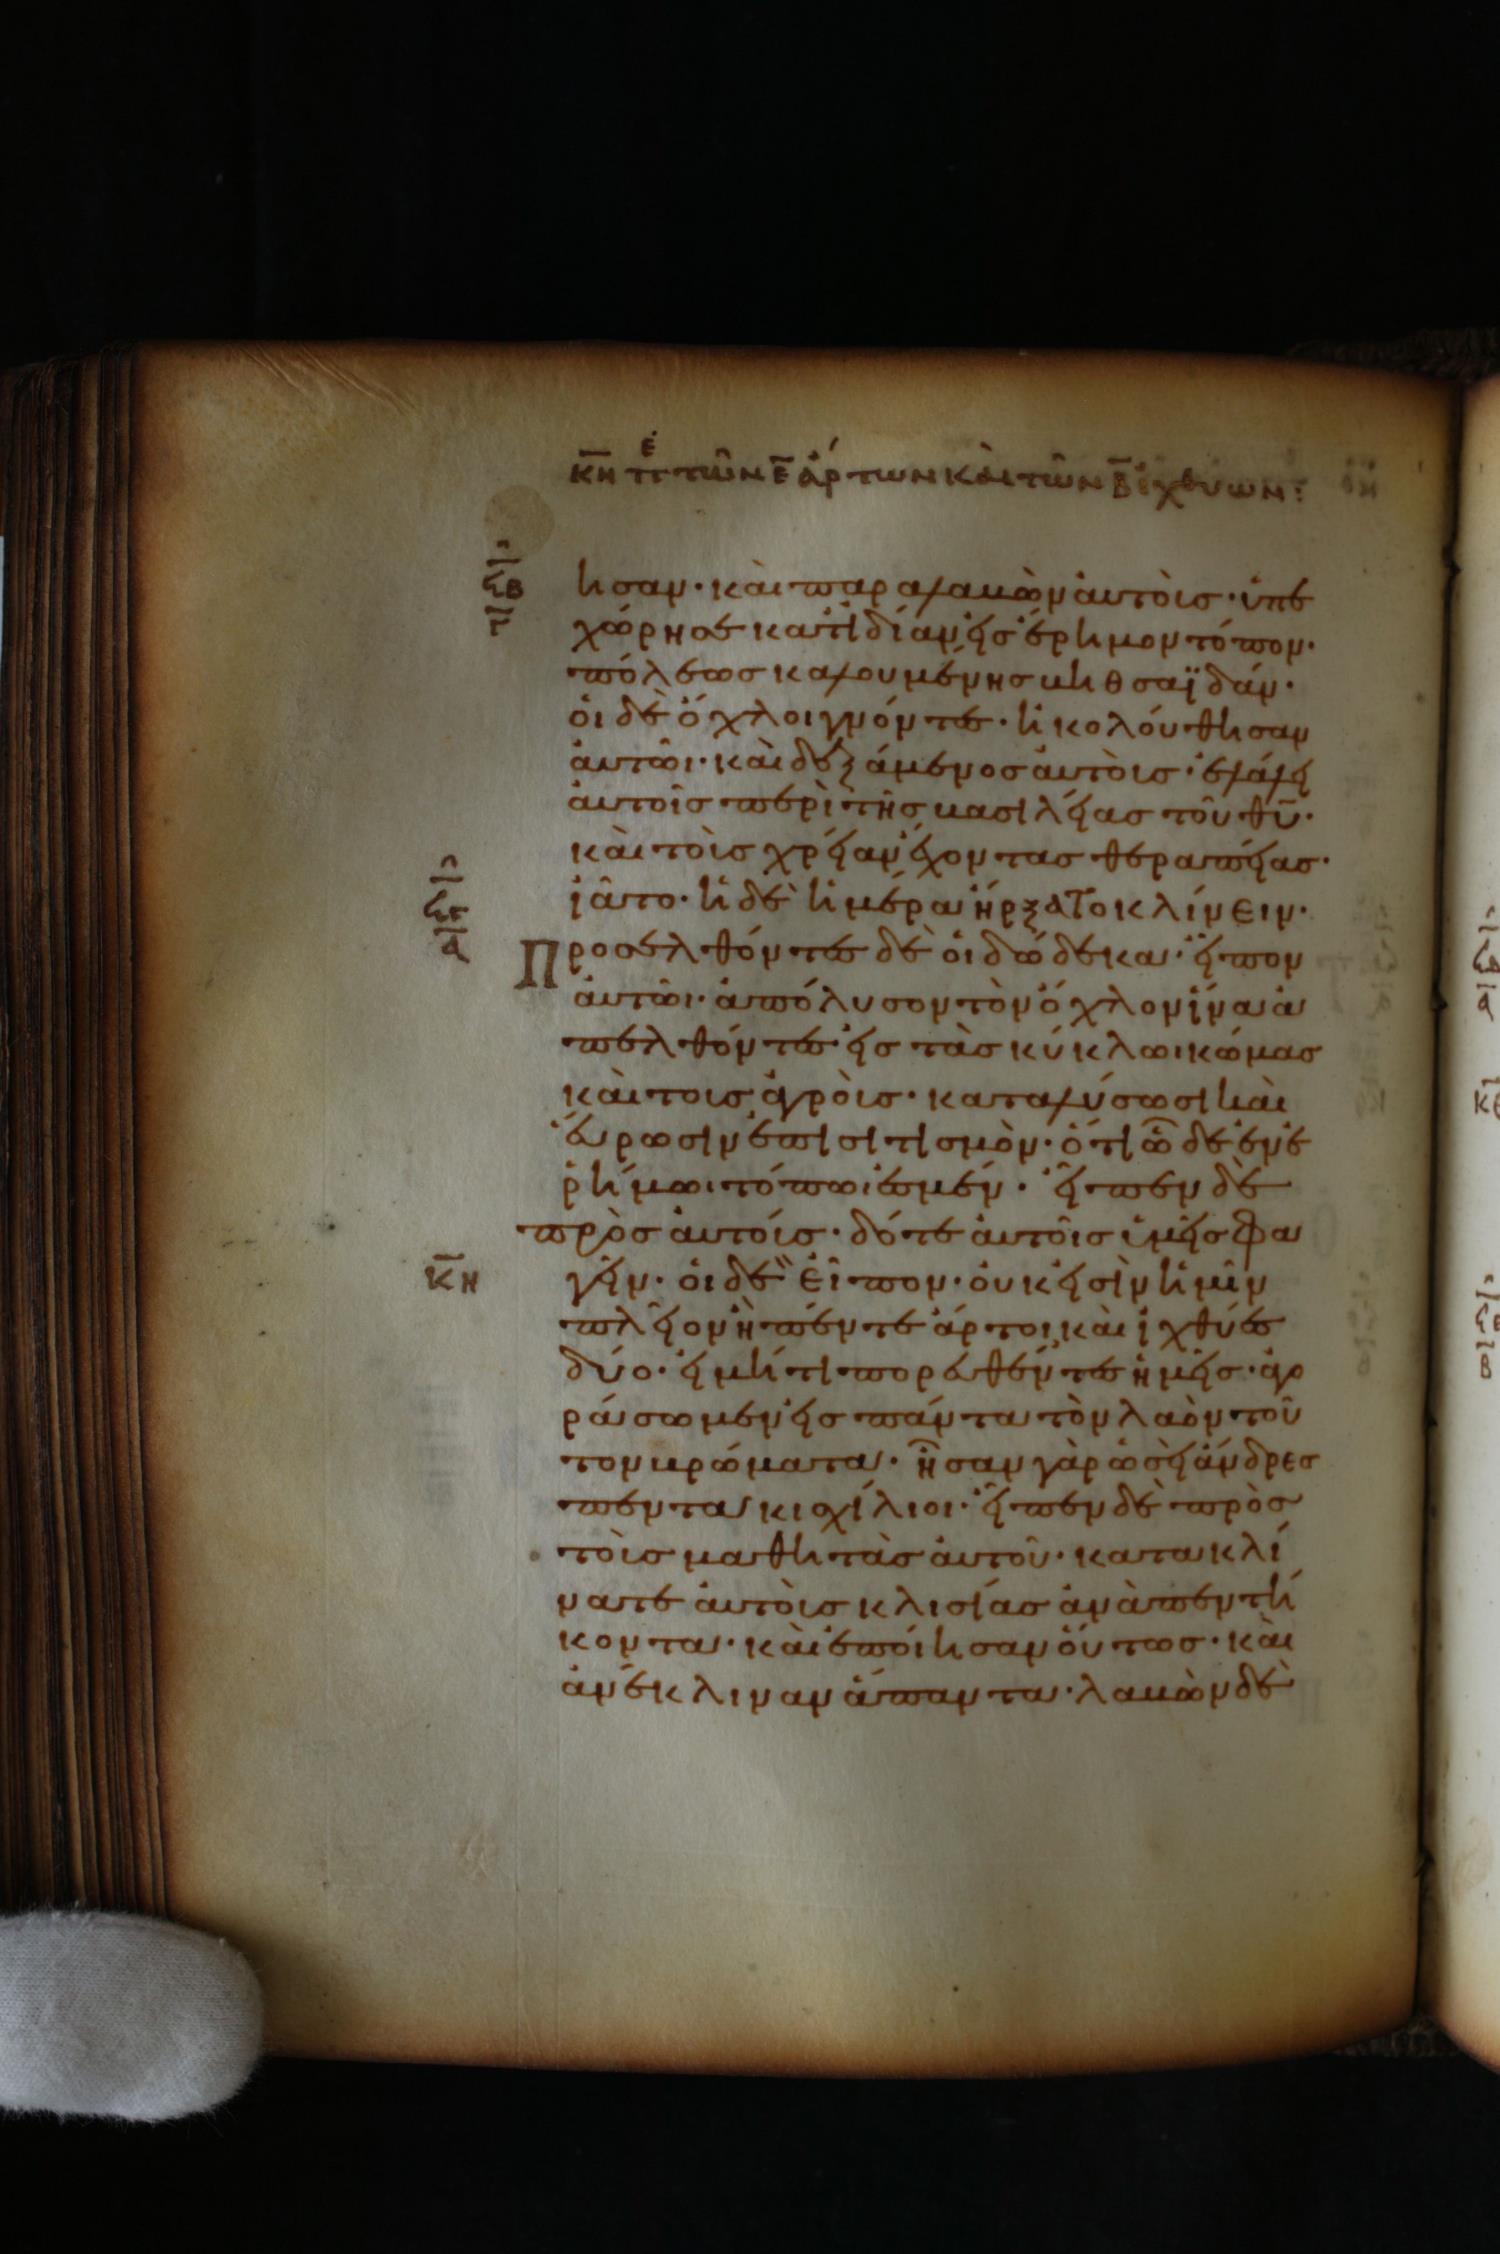 κη πε τῶν ε ἄρτων καὶ τῶν β ἰχθύων:
ϟβ
γ
ησαν· καὶ παραλαβὼν ἀυτοὺς· ὑπε
χώρησε κατϊδίαν εἰς ἔρημον τόπον·
πόλεως καλουμένης βηθσαϊδάν·
οἱ δὲ ὄχλοι γνόντες· ἠκολούθησαν
ἀυτῶι· καὶ δεξάμενος ἀυτοὺς· ἐλάλει
ἀυτοῖς περὶ τῆς βασιλείας τοῦ θῦ·
καὶ τοὺς χρείαν ἔχοντας θεραπείας·
ἰᾶτο· ἡ δὲ ἡμέρα ἤρξατο κλίνειν·
ϟγ
α
Προσελθόντες δὲ οἱ δώδεκα· εἶπον
ἀυτῶι· ἀπόλυσον τὸν ὄχλον ἵνα ἀ
πελθόντες εἰς τὰς κύκλωι κώμας
καὶ τους ἀγροὺς· καταλύσωσι καὶ
ἕυρωσιν ἐπισιτισμὸν· ὅτι ὧδε ἐν ἐ
ρήμωι τόπωι ἐσμέν· εἶπεν δὲ
πρὸς ἀυτούς· δότε ἀυτοῖς ὑμεῖς φα
κη
γεῖν· οἱ δὲ εἶπον· ὀυκ εἰσὶν ἡμῖν
πλεῖον ἢ πέντε ἄρτοι καὶ ἰχθύες
δύο· εἰ μήτι πορευθέντες ἡμεῖς· ἀγο
ράσωμεν εἰς πάντα τὸν λαὸν τοῦ
τον βρώματα· ἦσαν γὰρ ὡσεὶ ἄνδρες
πεντακισχίλιοι· εἶπεν δὲ πρὸς
τοὺς μαθητὰς ἀυτοῦ· κατακλί
νατε ἀυτοὺς κλισίας ἀνὰ πεντή
κοντα· καὶ ἐποίησαν ὅυτως· καὶ
ἀνέκλιναν ἅπαντα· λαβὼν δὲ